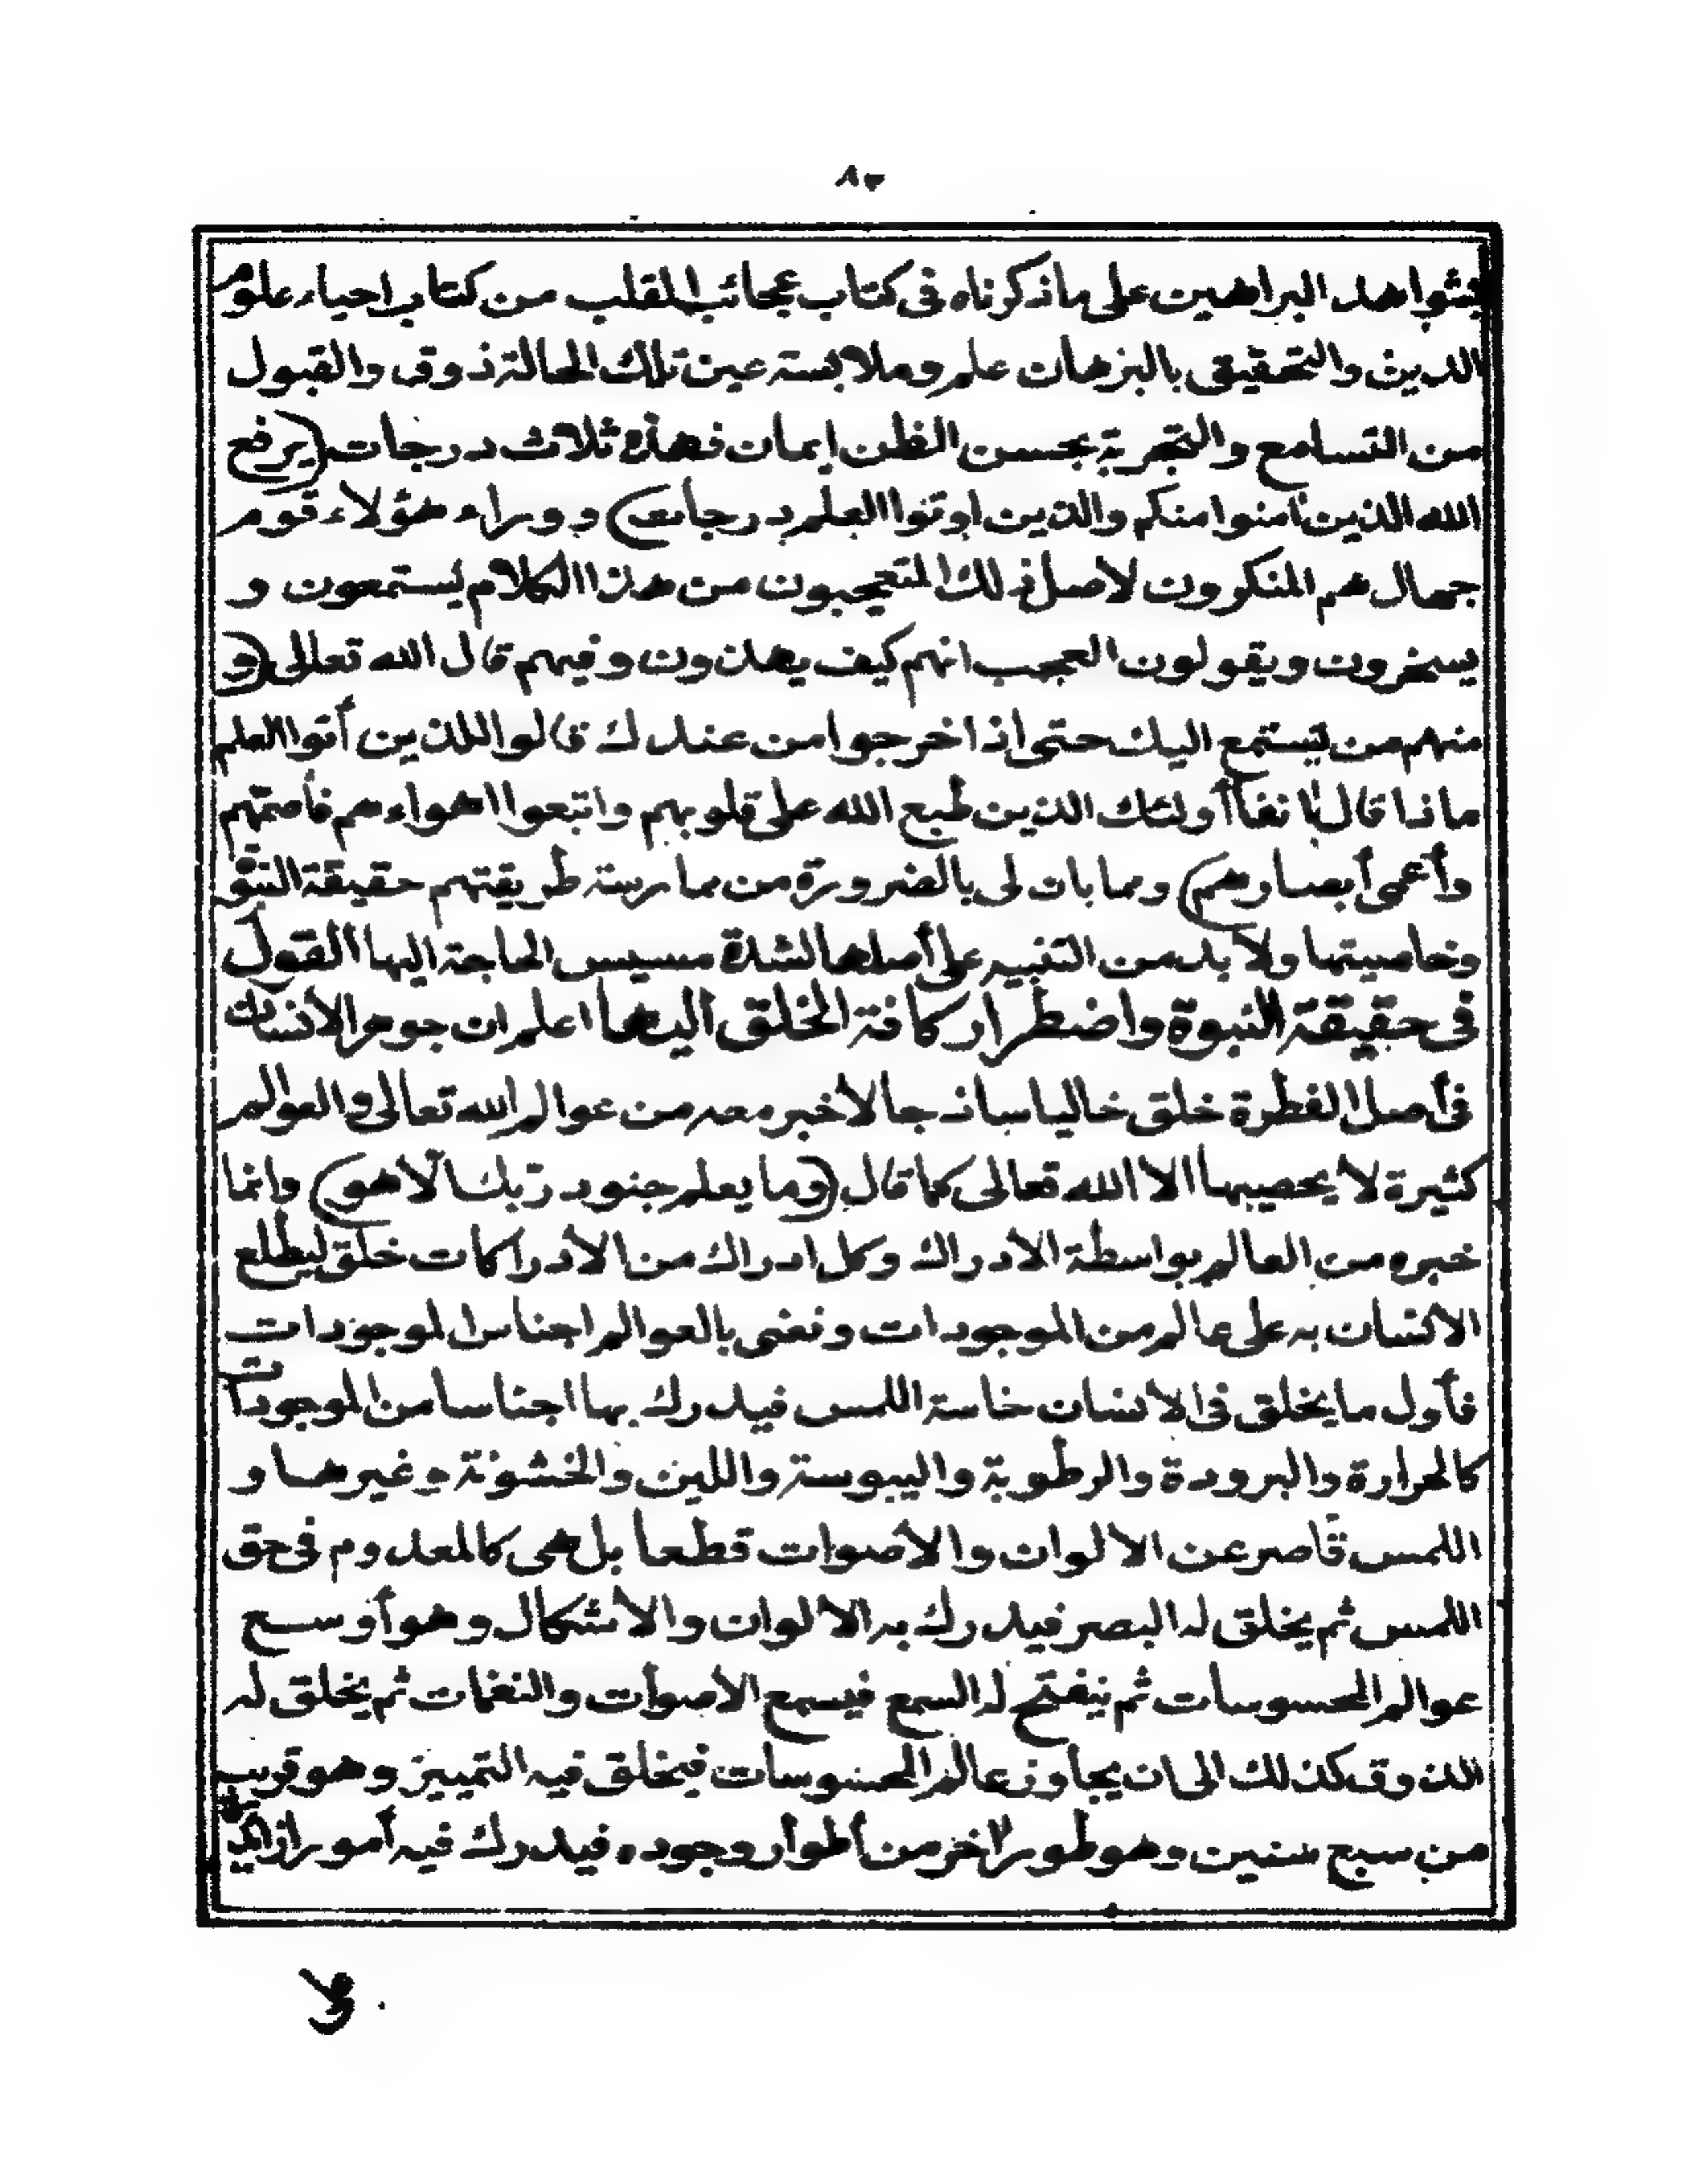 بشواهد البراهين على ماذكرناه فى كتاب عجائب القلب من كتاب احياء علوم
الدين والتحقيق بالبرهان علم وملابسة عين تلك الحالة ذوق والقبول
من التسامع والتجربة بحسن الظن ايمان فهذه ثلاث درجات (يرفع
الله الذين آمنوا منكم والذين اوتوا العلم درجات) و وراء هؤلاء قوم
جهال هم المنكرون لاصل ذلك المتعجبون من هذا الكلام يستمعون و
يسخرون ويقولون العجب انهم كيف يهذون وفيهم قال الله تعالى (و
منهم من يستمع اليك حتى اذا خرجوا من عندك قالوا للذين أتوا العلم
ماذا قال آنفا أولئك الذين طبع الله على قلوبهم واتبعوا اهواءهم فأصمّهم
وأعمى أبصارهم) ومما بان لى بالضرورة من ممارسة طريقتهم حقيقة النبوّة
وخاصيتها ولا بد من التنبيه على أصلها لشدة مسيس الحاجة اليها القول
فى حقيقة النبوة واضطرار كافة الخلق اليها اعلم ان جوهر الأنسان
فى أصل الفطرة خلق خاليا ساذجا لاخبر معه من عوالم الله تعالى والعوالم
كثيرة لا يحصيها الا الله تعالى كما قال (وما يعلم جنود ربّك الّا هو) وانما
خبره من العالم بواسطة الادراك وكل ادراك من الادراكات خلق ليطلع
الانسان به على عالم من الموجودات ونعنى بالعوالم اجناس الموجودات
فأول ما يخلق فى الانسان خاسة اللمس فيدرك بها اجناسا من الموجودات
كالحرارة والبرودة والرطوبة واليبوسة واللين والخشونة وغيرها و
اللمس قاصر عن الالوان والأصوات قطعا بل هى كالمعدوم فى حق
اللمس ثم يخلق له البصر فيدرك به الالوان والاشكال وهو أوسع
عوالم المحسوسات ثم ينفتح له السمع فيسمع الأصوات والنغمات ثم يخلق له
الذوق كذلك الى ان يجاوز عالم المحسوسات فيخلق فيه التمييز وهو قريب
من سبع سنين وهو طور آخر من أطوار وجوده فيدرك فيه أمورا زائدة